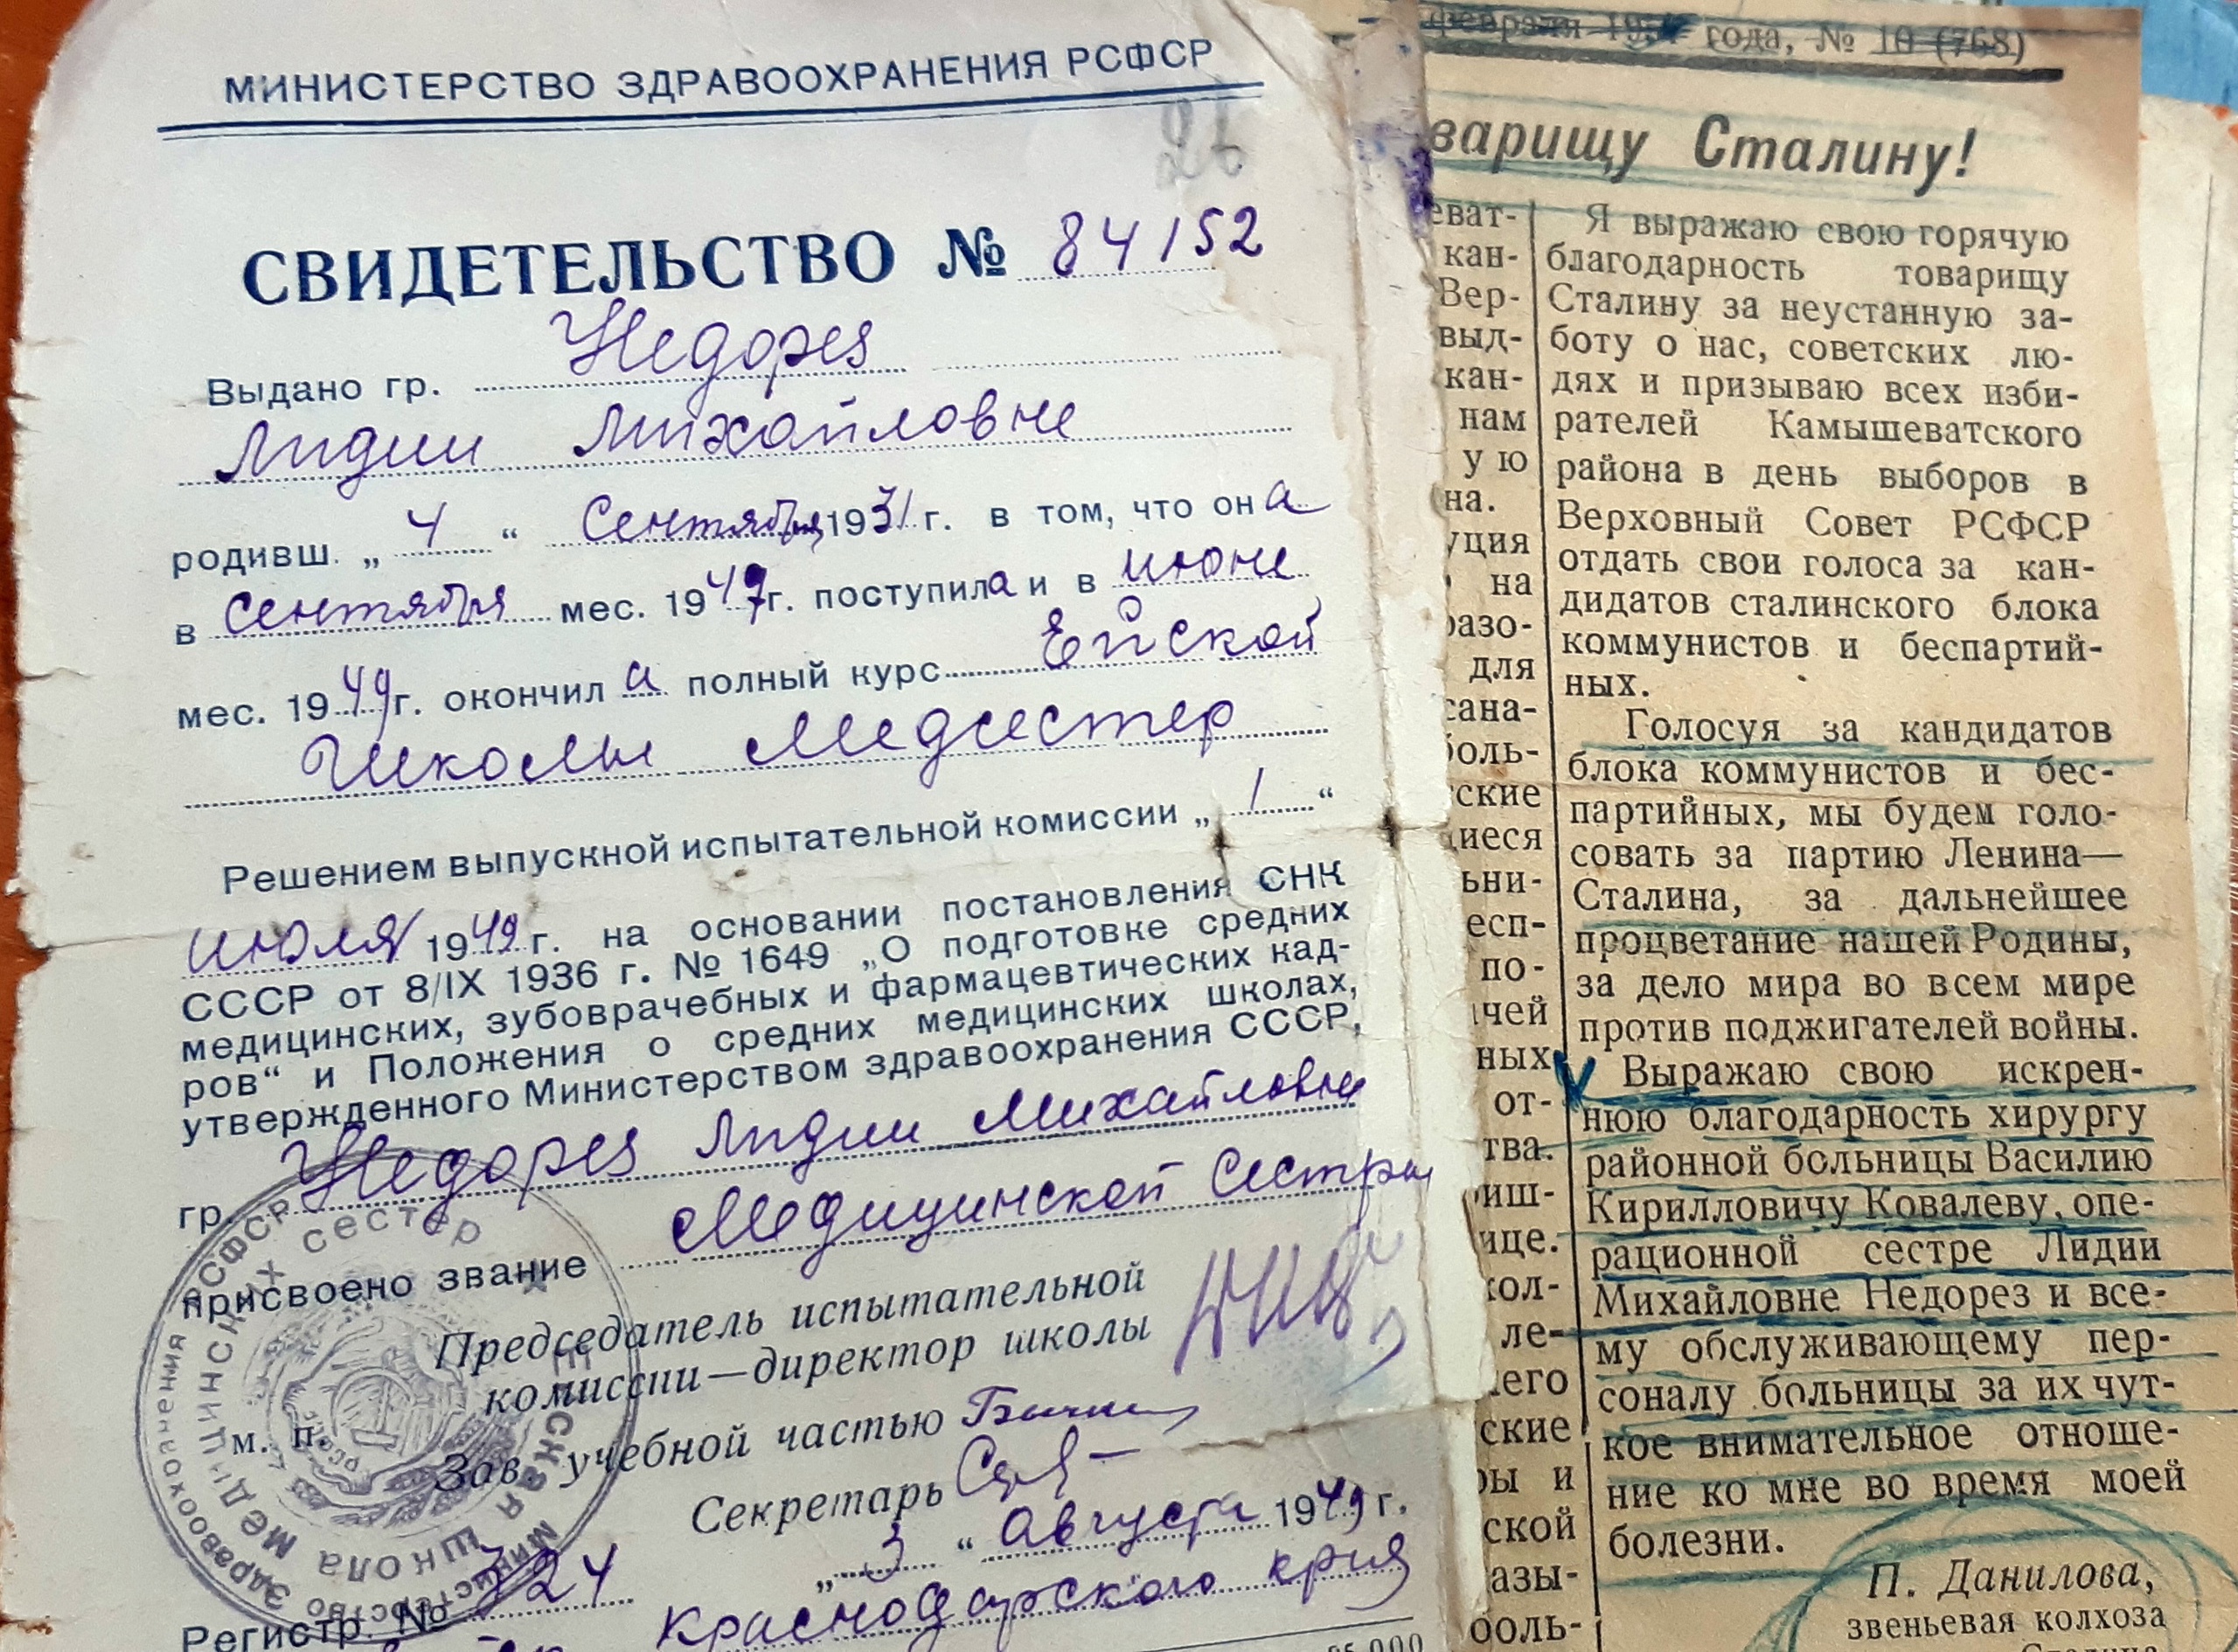 МИНИСТЕРСТВО ЗДРАВООХРАНЕНИЯ РСФСР
СВИДЕТЕЛЬСТВО № 84152
Выдано гр. Недорез
Лидии Михайловне
родивш. „ 4 “ Сентября 1931 г. в том, что она
в Сентября мес. 1947 г. поступила и в июне
мес. 1949 г. окончила полный курс Ейской
Школы Медсестер
Решением выпускной испытательной комиссии „ 1 “
июля 1949 г. на основании постановления СНК
СССР от 8/IX 1936 г. № 1649 „О подготовке средних
медицинских, зубоврачебных и фармацевтических кад-
ров“ и Положения о средних медицинских школах,
утвержденного Министерством здравоохранения СССР,
гр. Недорез Лидии Михайловне
присвоено звание Медицинской Сестры
Председатель испытательной
комиссии—директор школы
м. п.
Зав. учебной частью
Секретарь
„ 3 “ Августа 1949 г.
Регистр. № 724
Краснодарского края
февраля года, № 10 (768)
варищу Сталину!
еват-
кан-
Вер-
выд-
кан-
нам
ую
на.
уция
на
разо-
для
сана-
боль-
ские
щиеся
ьни-
есп-
по-
чей
ных
от-
тва.
риш-
ице.
кол-
ле-
него
ские
ры и
ской
азы-
боль-
Я выражаю свою горячую
благодарность товарищу
Сталину за неустанную за-
боту о нас, советских лю-
дях и призываю всех изби-
рателей Камышеватского
района в день выборов в
Верховный Совет РСФСР
отдать свои голоса за кан-
дидатов сталинского блока
коммунистов и беспартий-
ных.
Голосуя за кандидатов
блока коммунистов и бес-
партийных, мы будем голо-
совать за партию Ленина—
Сталина, за дальнейшее
процветание нашей Родины,
за дело мира во всем мире
против поджигателей войны.
Выражаю свою искрен-
нюю благодарность хирургу
районной больницы Василию
Кирилловичу Ковалеву, опе-
рационной сестре Лидии
Михайловне Недорез и все-
му обслуживающему пер-
соналу больницы за их чут-
кое внимательное отноше-
ние ко мне во время моей
болезни.
П. Данилова,
звеньевая колхоза